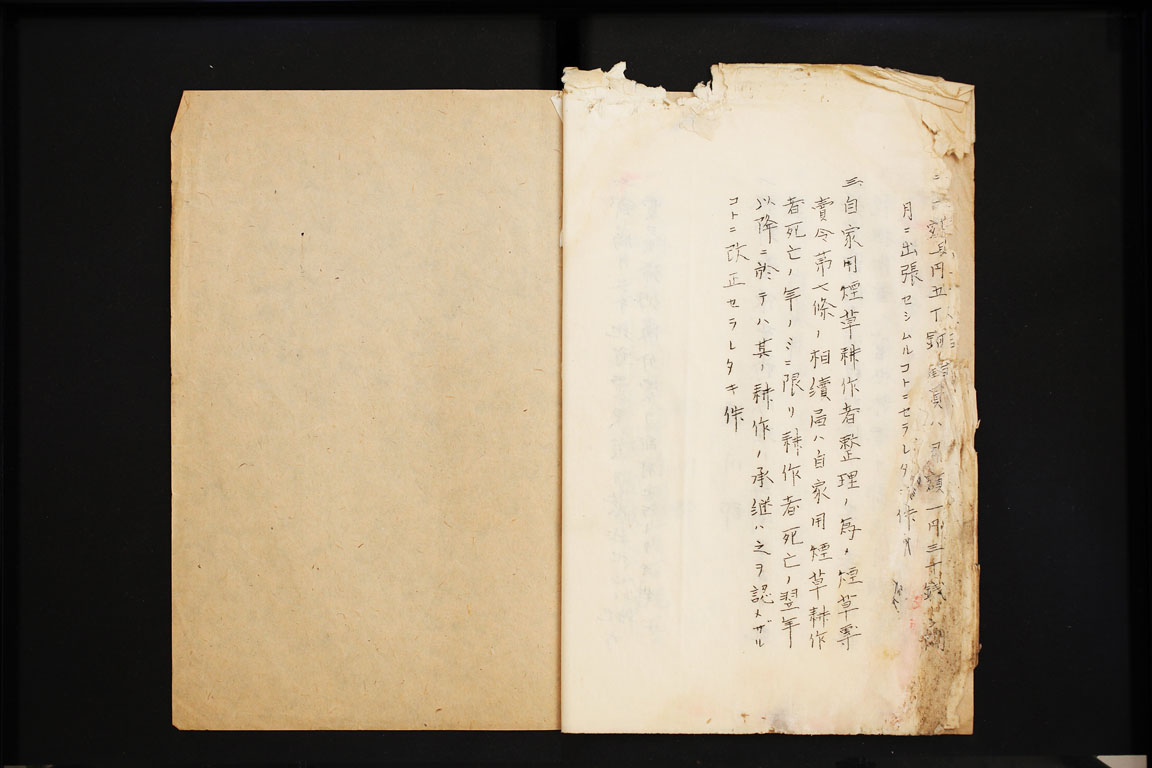 円五
員ハ月額一円三十銭
月ニ出張セシムルコトニセラレタ 件
三、自家用煙草耕作者整理ノ為メ煙草専
賣令第七條ノ相續届ハ自家用煙草耕作
者死亡ノ年ノミニ限リ耕作者死亡ノ翌年
以降ニ於テハ其ノ耕作ノ承継ハ之ヲ認メザル
コトニ改正セラレタキ件